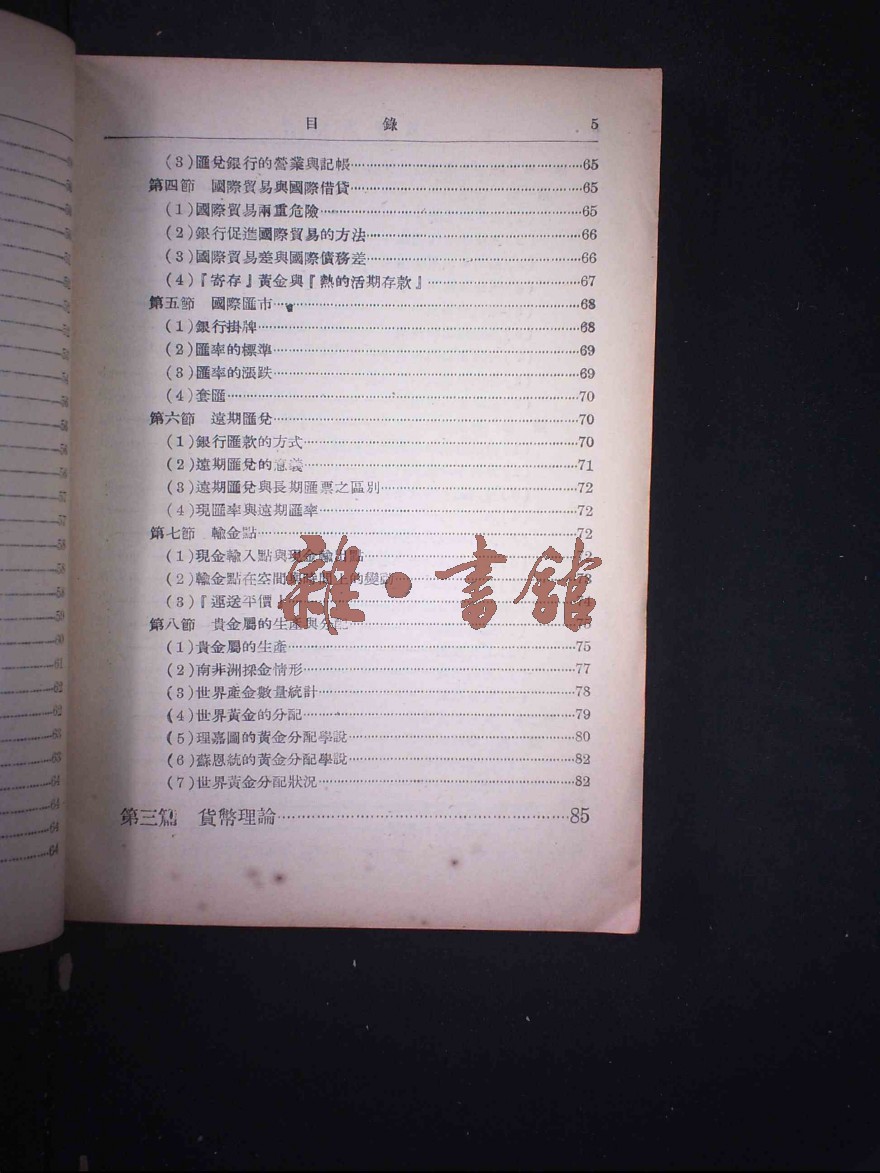 目　錄　5
(3)匯兌銀行的營業與記帳……65
第四節　國際貿易與國際借貸……65
(1)國際貿易兩重危險……65
(2)銀行促進國際貿易的方法……66
(3)國際貿易差與國際債務差……66
(4)『寄存』黃金與『熱的活期存款』……67
第五節　國際匯市……68
(1)銀行掛牌……68
(2)匯率的標準……69
(3)匯率的漲跌……69
(4)套匯……70
第六節　遠期匯兌……70
(1)銀行匯款的方式……70
(2)遠期匯兌的意義……71
(3)遠期匯兌與長期匯票之區別……72
(4)現匯率與遠期匯率……72
第七節　輸金點……72
(1)現金輸入點與現金輸出點……
(2)輸金點在空間與時間上的變動……73
(3)『運送平價』……
第八節　貴金屬的生產與分配……
(1)貴金屬的生產……75
(2)南非洲採金情形……77
(3)世界產金數量統計……78
(4)世界黃金的分配……79
(5)理嘉圖的黃金分配學說……80
(6)蘇恩統的黃金分配學說……82
(7)世界黃金分配狀況……82
第三篇　貨幣理論……85
雜·書館